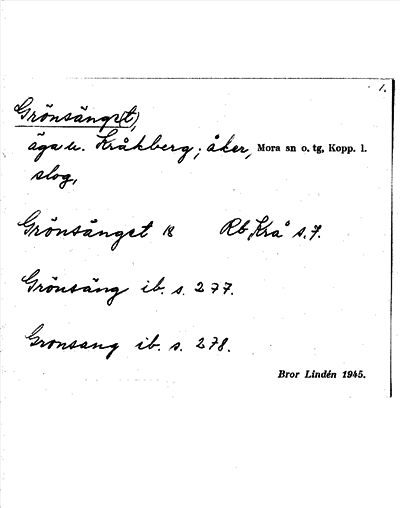 1.
Grönsänge(t)
äga u. Kråkberg; åker, Mora sn o. tg, Kopp. l.
slog,
Grönsänget Rb, Krå s. 7.
Grönsäng ib. s. 277.
Gronsang ib. s. 278.
Bror Lindén 1945.